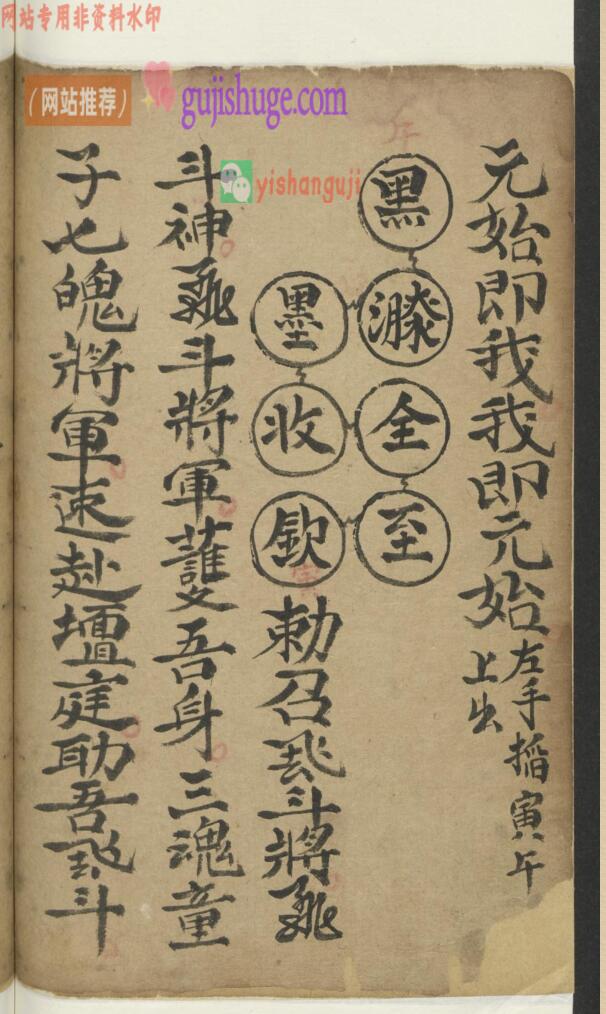 网站专用非资料水印
（网站推荐）
gujishuge.com
yishanguji
元始即我我即元始
左手掐寅午
上出
午
黑
全
至
墨
收
欽
寅
勅召飛斗將飛
斗神飛斗將軍護吾身三魂童
子七魄將軍速赴壇庭助吾飛斗